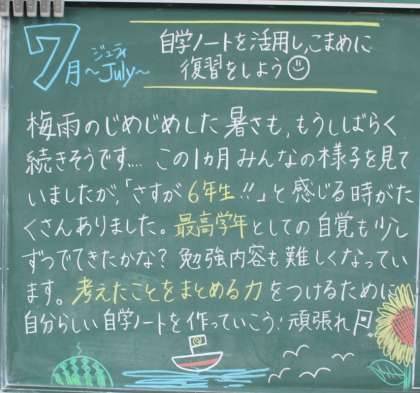 7月 ジュライ ～July～
自学ノートを活用し、こまめに
復習をしよう
梅雨のじめじめした暑さも、もうしばらく
続きそうです.... この1カ月みんなの様子を見て
いましたが、「さすが6年生!!」と感じる時がた
くさんありました。最高学年としての自覚も少し
ずつでてきたかな？勉強内容も難しくなってい
ます。考えたことをまとめる力をつけるために
自分らしい自学ノートを作っていこう！頑張れ